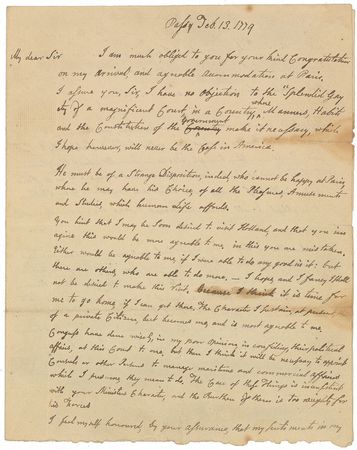 Passy Feb. 13. 1779
My dear Sir
I am much obliged to you for your kind Congratulations
on my arrival, and agreable accommodations at Paris.
I assure you, Sir, I have no objection to the "Splendid Gay
ety of a magnificent Court, in a Country where Manners, Habits
and the Constitution of the Government Country make it necessary, which
I hope however, will never be the Case in America.
He must be of a strange Disposition, indeed, who cannot be happy at Paris,
where he may have his Choice, of all the Pleasures, Amusements
and Studies, which human Life affords.
You hint that I may be soon desired to visit Holland, and that you ima
agine this would be more agreable to me, in this you are mistaken.
Either would be agreable to me, if I were able to do any good in it: but
there are others, who are able to do more, — I hope, and I fancy I shall
not be desired to make this Visit, because I think it is time for
me to go home, if I can get there. The Character I sustain, at present
of a private Citizen, best becomes me, and is most agreable to me.
Congress have done wisely, in my poor Opinion, in confiding their political
affairs, at this Court to one, but then I think it will be necessary to appoint
Consuls or other Persons to manage maritime and commercial affairs
which I presume, they mean to do. The Care of these Things is inconsistent
with your Ministers Character, and the Burthen of them is too weighty for
his Forces
I feel myself honoured, by your assurance, that my sentiments in my